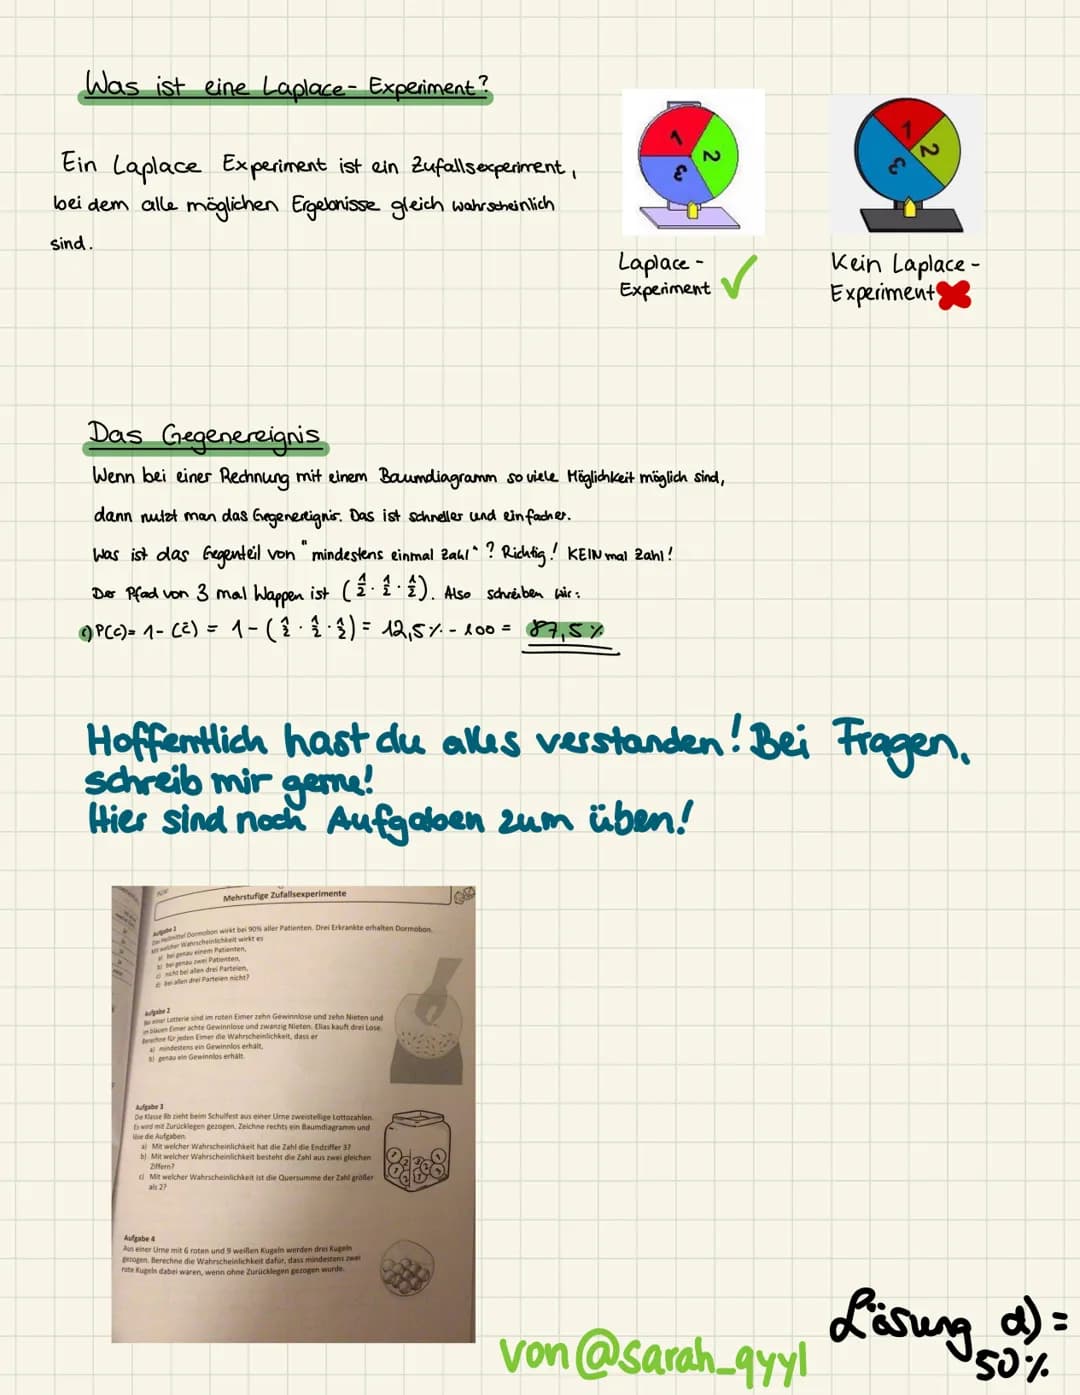 Was ist eine Laplace-Experiment?
Ein Laplace Experiment ist ein Zufallsexperiment,
bei dem alle möglichen Ergebnisse gleich wahrscheinlich
sind.
1
2
3
Laplace-
Experiment
1
2
3
Kein Laplace-
Experiment
Das Gegenereignis
Wenn bei einer Rechnung mit einem Baumdiagramm so viele Möglichkeit möglich sind,
dann nutzt man das Gegenereignis. Das ist schneller und einfacher.
Was ist das Gegenteil von "mindestens einmal Zahl"? Richtig! KEINmal Zahl!
Der Pfad von 3 mal Wappen ist (1/2 · 1/2 · 1/2). Also schreiben wir:
c) P(C)= 1-(c̄) = 1-(1/2 · 1/2 · 1/2) = 12,5% - 100 = 87,5%
Hoffentlich hast du alles verstanden! Bei Fragen,
schreib mir gerne!
Hier sind noch Aufgaben zum üben!
Mehrstufige Zufallsexperimente
Aufgabe 1
Das Heilmittel Dormobon wirkt bei 90% aller Patienten. Drei Erkrankte erhalten Dormobon.
Mit welcher Wahrscheinlichkeit wirkt es
a) bei genau einem Patienten,
b) bei genau zwei Patienten,
c) nicht bei allen drei Parteien,
d) bei allen drei Parteien nicht?
Aufgabe 2
Bei einer Lotterie sind im roten Eimer zehn Gewinnlose und zehn Nieten und
im blauen Eimer achte Gewinnlose und zwanzig Nieten. Elias kauft drei Lose.
Berechne für jeden Eimer die Wahrscheinlichkeit, dass er
a) mindestens ein Gewinnlos erhält,
b) genau ein Gewinnlos erhält.
Aufgabe 3
Die Klasse 8b zieht beim Schulfest aus einer Urne zweistellige Lottozahlen.
Es wird mit Zurücklegen gezogen. Zeichne rechts ein Baumdiagramm und
löse die Aufgaben.
a) Mit welcher Wahrscheinlichkeit hat die Zahl die Endziffer 3?
b) Mit welcher Wahrscheinlichkeit besteht die Zahl aus zwei gleichen
Ziffern?
c) Mit welcher Wahrscheinlichkeit ist die Quersumme der Zahl größer
als 2?
Aufgabe 4
Aus einer Urne mit 6 roten und 9 weißen Kugeln werden drei Kugeln
gezogen. Berechne die Wahrscheinlichkeit dafür, dass mindestens zwei
rote Kugeln dabei waren, wenn ohne Zurücklegen gezogen wurde.
von@sarah_qyyl
Lösung d) =
50%